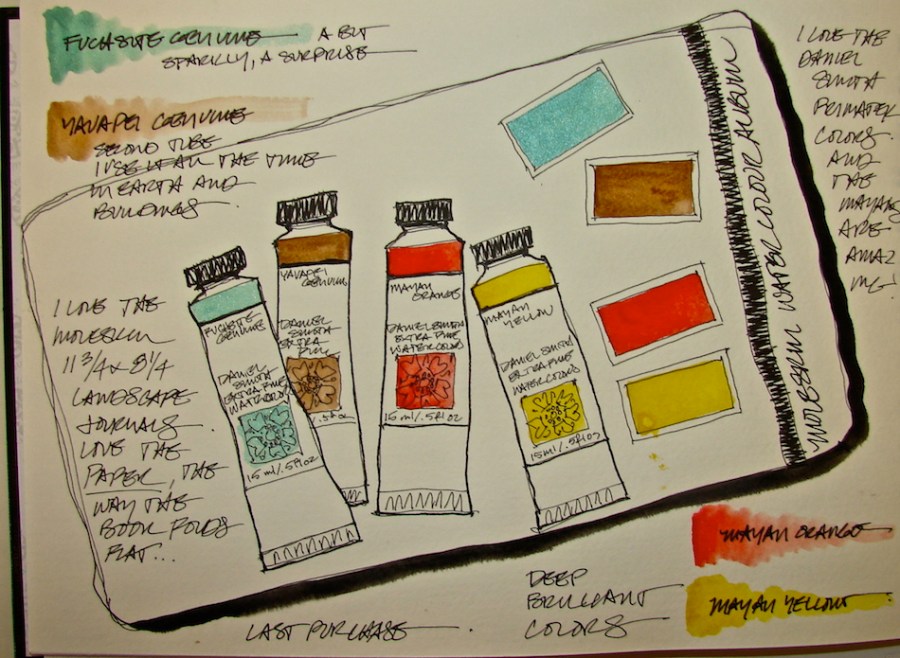 FUCHSITE GENUINE A BIT
SPARKLY, A SURPRISE
YAVAPAI GENUINE
SECOND TUBE
I USE IT ALL THE TIME
IN EARTH AND
BUILDINGS
I LOVE THE
MOLESKIN
11 3/4 x 8 1/4
LANDSCAPE
JOURNALS.
LOVE THE
PAPER, THE
WAY THE
BOOK FOLDS
FLAT...
FUCHSITE
GENUINE
DANIEL
SMITH
EXTRA FINE
WATERCOLORS
15 ml/.5fl oz
YAVAPAI
GENUINE
DANIEL
SMITH
EXTRA
FINE
/.5fl oz
MAYAN
ORANGE
DANIEL SMITH
EXTRA FINE
WATERCOLORS
15 ml/.5fl oz
MAYAN
YELLOW
DANIEL SMITH
EXTRA FINE
WATERCOLORS
15 ml/.5fl oz
MOLESKIN WATERCOLOUR ALBUM
I LOVE THE
DANIEL
SMITH
PRIMATEK
COLORS.
AND
THE
MAYANS
ARE
AMAZ
ING!
MAYAN ORANGE
MAYAN YELLOW
DEEP
BRILLIANT
COLORS
LAST PURCHASE